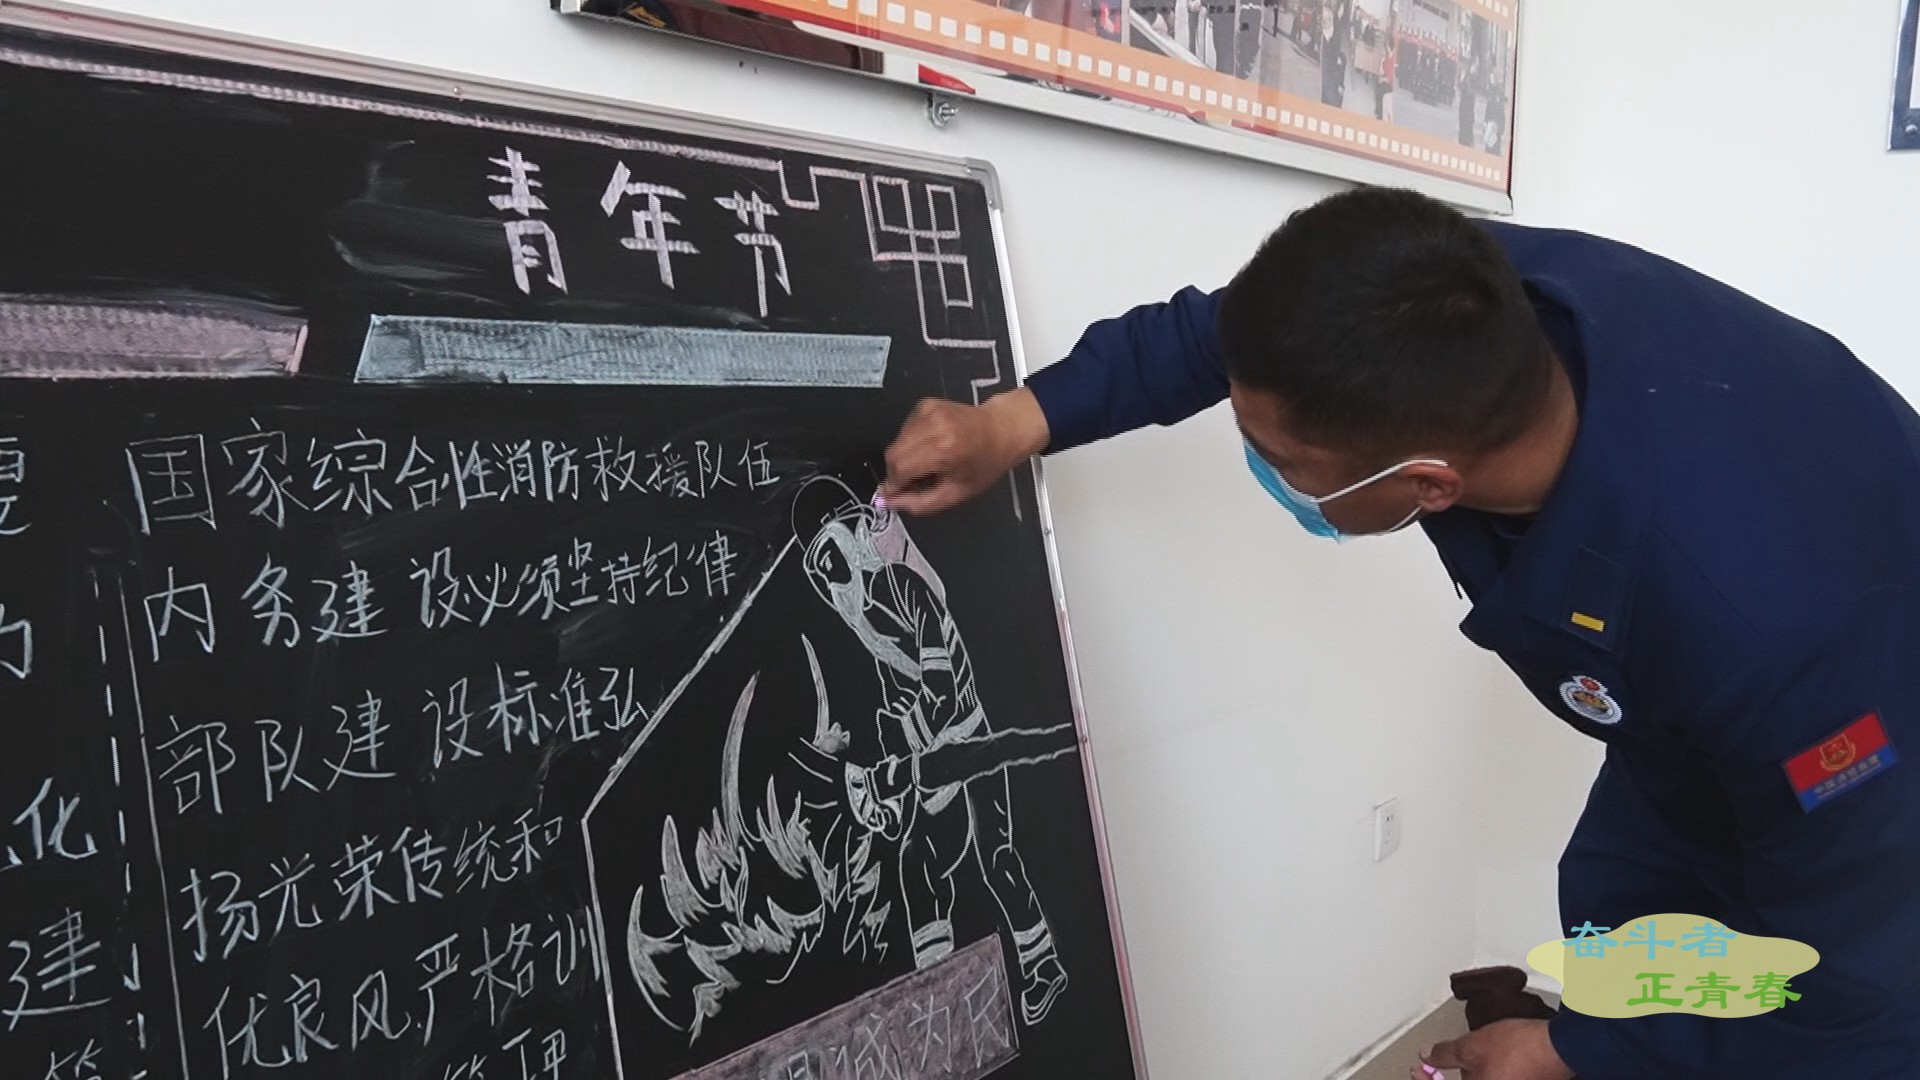 青年节
国家综合性消防救援队伍
内务建设必须坚持纪律
部队建设标准弘
扬光荣传统和
优良风严格训
管理
化
建
管
诚为民
奋斗者
正青春